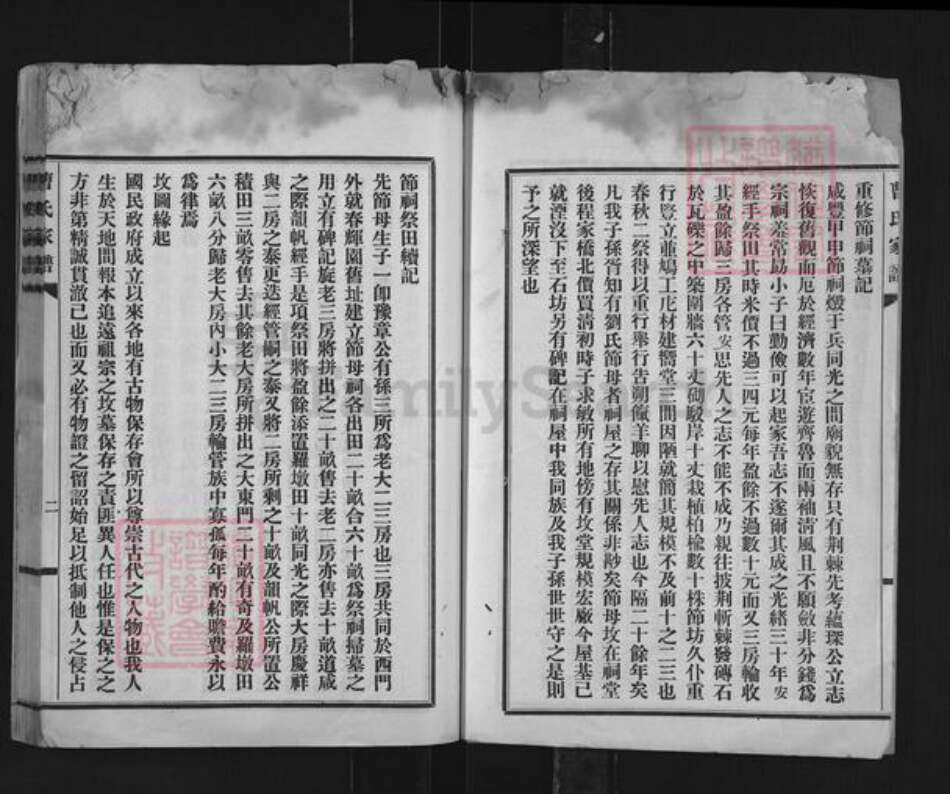 曹氏家譜
重修節祠墓記
咸豐甲申節祠燬于兵同光之間廟貌無存只有荆棘先考蘊璞公立志
恢復舊觀而厄於經濟數年宦遊齊魯而兩袖淸風且不願斂非分錢爲
宗祠羞常勗小子曰勤儉可以起家吾志不遂爾其成之光緒三十年安
經手祭田其時米價不過三四元每年盈餘不過數十元而又三房輪收
其盈餘歸三房各管安思先人之志不能不成乃親往披荆斬棘發磚石
於瓦礫之中築圍牆六十丈砌駁岸十丈栽植柏楡數十株節坊久仆重
行豎立並鳩工庀材建嚮堂三間因陋就簡其規模不及前十之二三也
春秋二祭得以重行舉行告朔餼羊聊以慰先人志也今隔二十餘年矣
凡我子孫胥知有劉氏節母者祠屋之存其關係非尠矣節母坟在祠堂
後程家橋北價買淸初時子求敏所有地傍有坟堂規模宏廠今屋基已
就湮沒下至石坊另有碑記在祠屋中我同族及我子孫世世守之是則
予之所深望也
節祠祭田續記
先節母生子一卽豫章公有孫三所爲老大二三房也三房共同於西門
外就春輝園舊址建立節母祠各出田二十畝合六十畝爲祭祠掃墓之
用立有碑記旋老三房將拼出之二十畝售去老二房亦售去十畝道咸
之際韻帆經手是項祭田將盈餘添置羅墩田十畝同光之際大房慶祥
與二房之泰更迭經管嗣之泰又將二房所剩之十畝及韻帆公所置公
積田三畝零售去其餘老大房所拼出之大東門二十畝有奇及羅墩田
六畝八分歸老大房內小大二三房輪管族中寡孤每年酌給贍費永以
爲律焉
坟圖緣起
國民政府成立以來各地有古物保存會所以尊崇古代之人物也我人
生於天地間報本追遠祖宗之坟墓保存之責匪異人任也惟是保之之
方非第精誠貫澈已也而又必有物證之留詔始足以抵制他人之侵占
曹氏家譜
二
FamilySearch